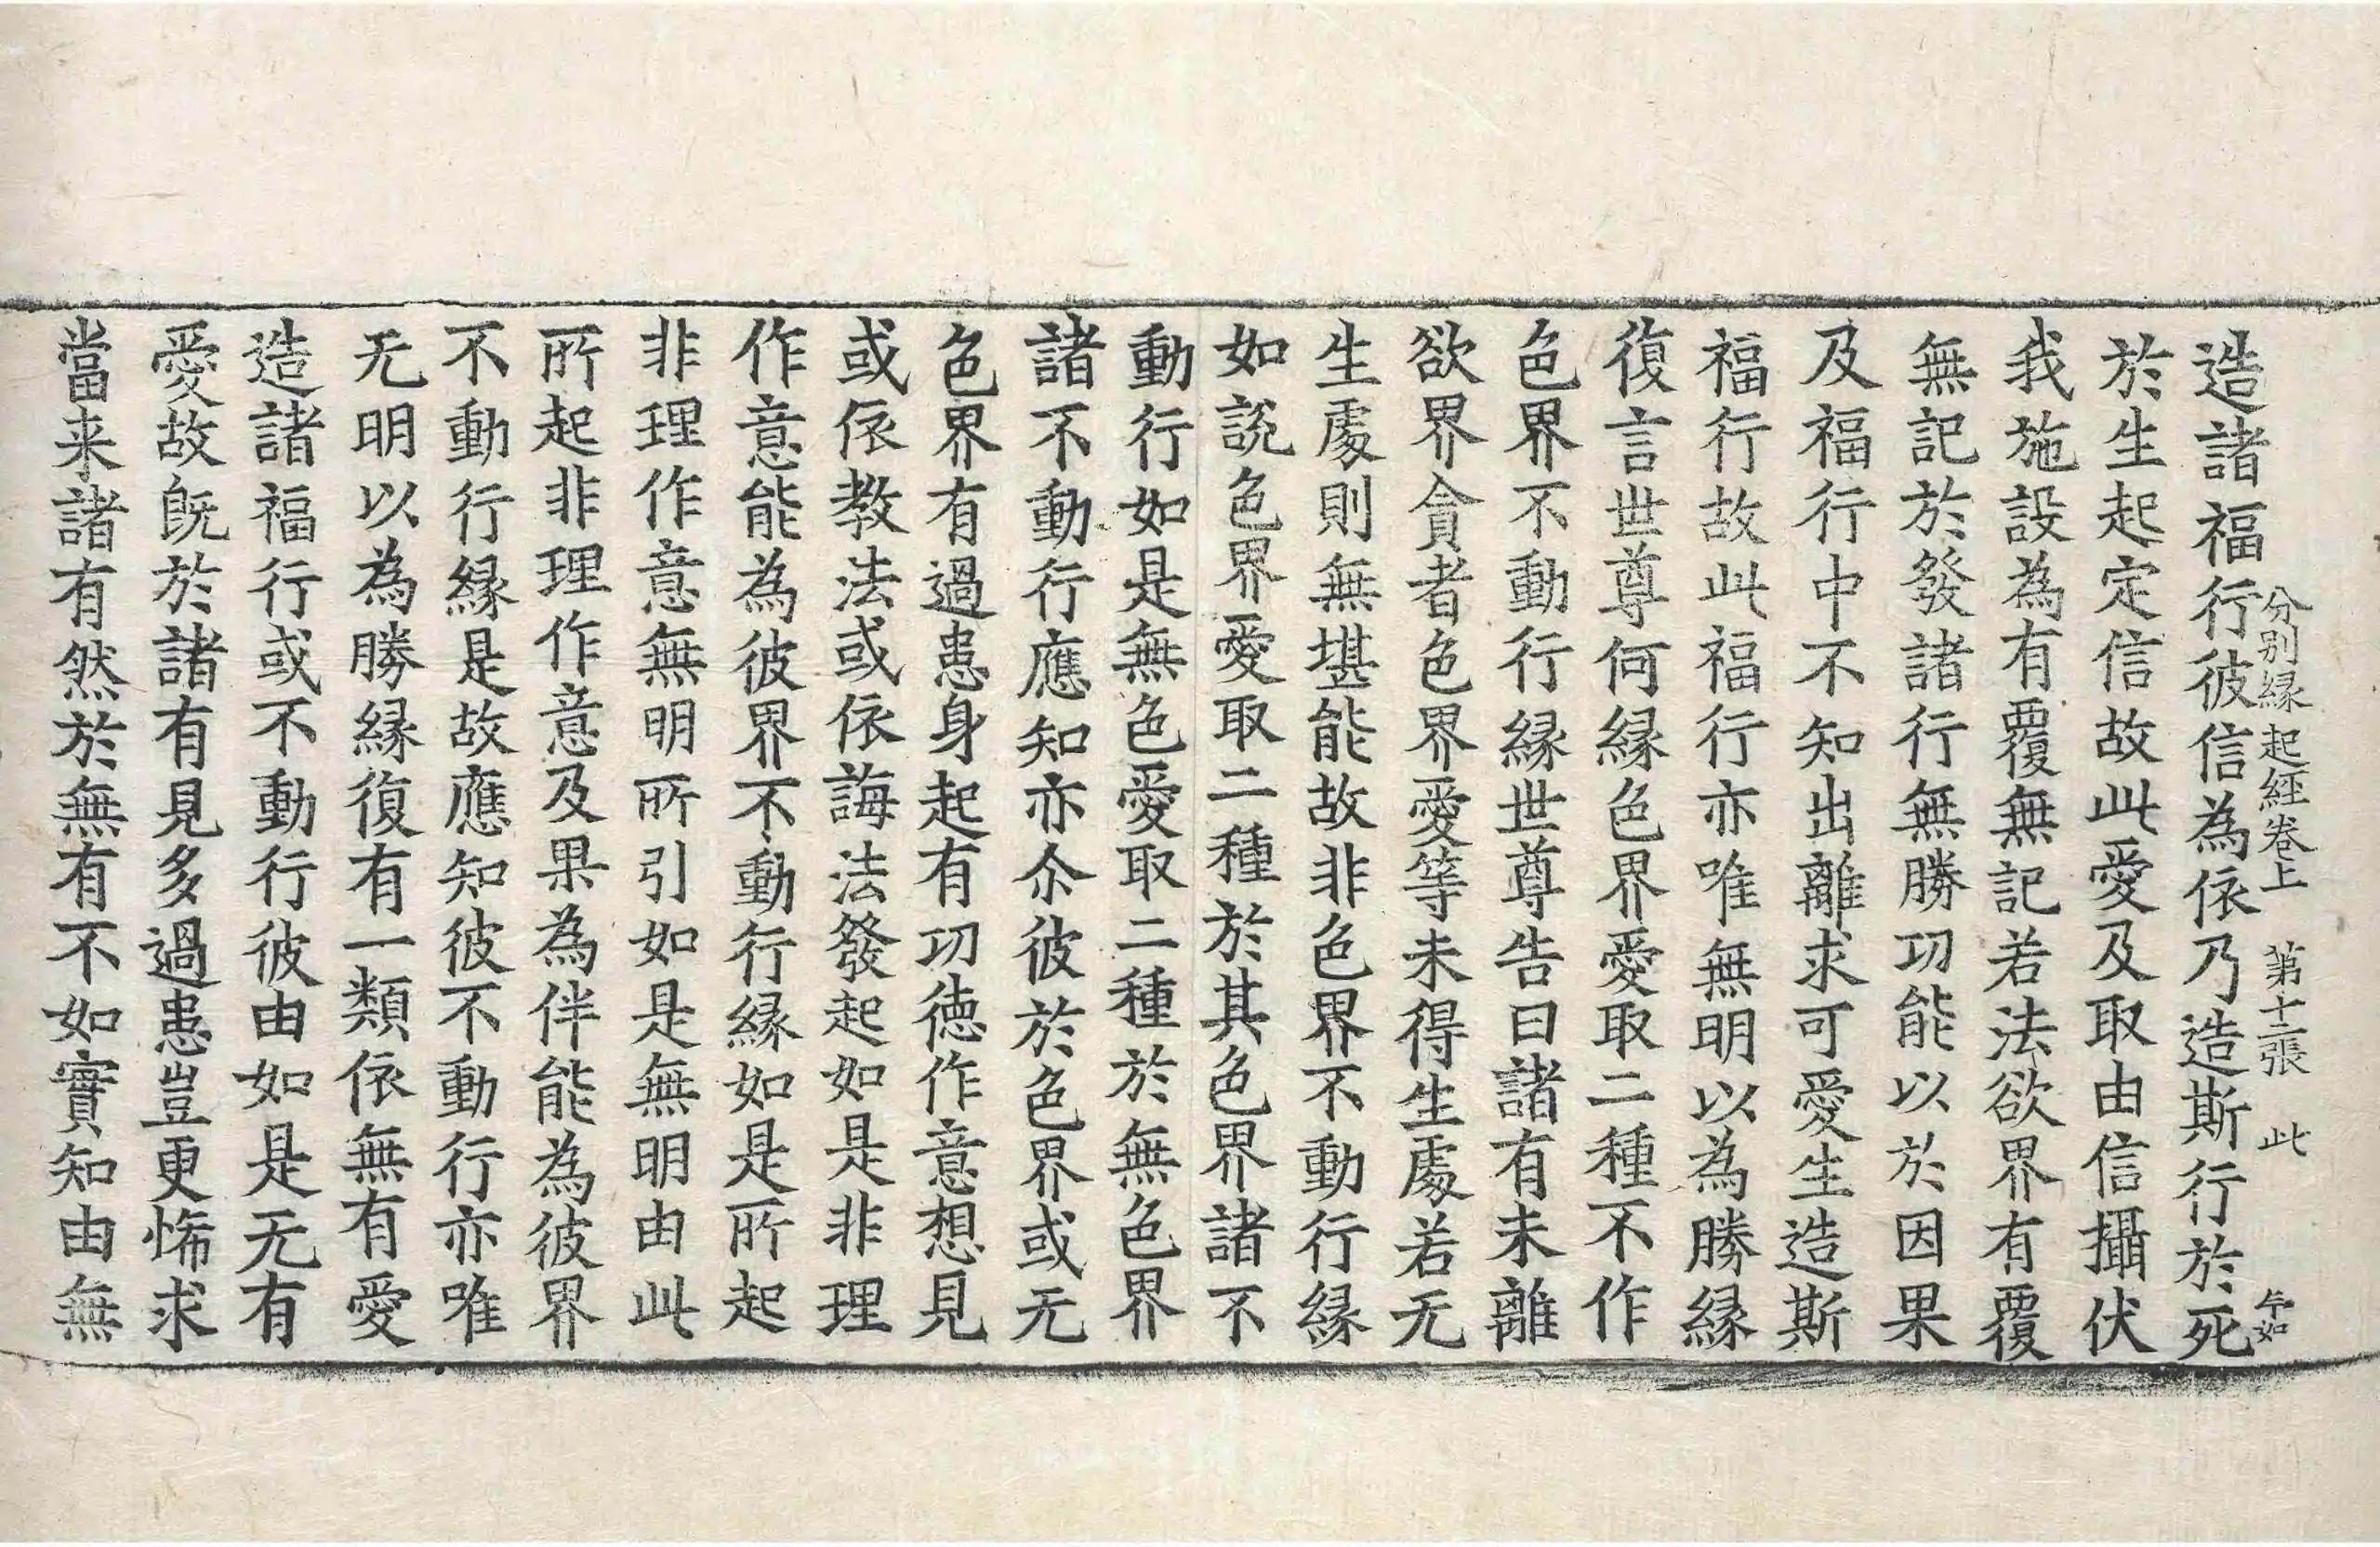 分別縁起經卷上 第十二張 此
造諸福行彼信為依乃造斯行於死
於生起定信故此愛及取由信攝伏
我施設為有覆無記若法欲界有覆
無記於發諸行無勝功能以於因果
及福行中不知出離求可愛生造斯
福行故此福行亦唯無明以為勝縁
復言世尊何縁色界愛取二種不作
色界不動行縁世尊告曰諸有未離
欲界貪者色界愛等未得生處若无
生處則無堪能故非色界不動行縁
如說色界愛取二種於其色界諸不
動行如是無色愛取二種於無色界
諸不動行應知亦尒彼於色界或无
色界有過患身起有功徳作意想見
或依教法或依誨法發起如是非理
作意能為彼界不動行縁如是所起
非理作意無明所引如是無明由此
所起非理作意及果為伴能為彼界
不動行縁是故應知彼不動行亦唯
无明以為勝縁復有一類依無有愛
造諸福行或不動行彼由如是无有
愛故旣於諸有見多過患豈更悕求
當来諸有然於無有不如實知由無